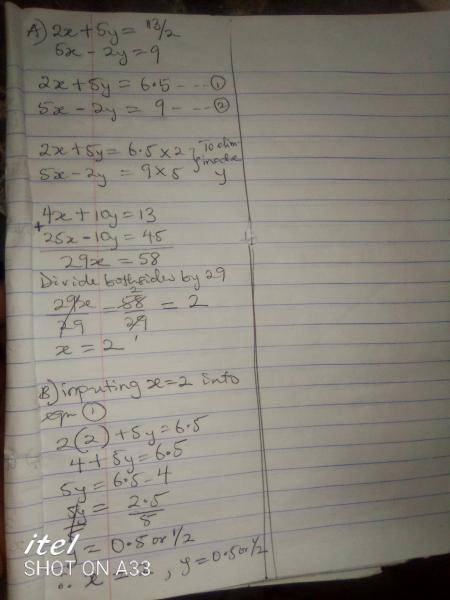 A) 2x + 5y = 13/2
5x - 2y = 9
2x + 5y = 6.5 --- ①
5x - 2y = 9 --- ②
2x + 5y = 6.5 x 2 } To elim-
5x - 2y = 9 x 5 inate
y
4x + 10y = 13
+ 25x - 10y = 45
29x = 58
Divide both sides by 29
29x/29 = 58/29 = 2
x = 2
B) inputing x = 2 into
eqn ①
2(2) + 5y = 6.5
4 + 5y = 6.5
5y = 6.5 - 4
= 2.5/5
= 0.5 or 1/2
∴ x = , y = 0.5 or 1/2
itel
SHOT ON A33